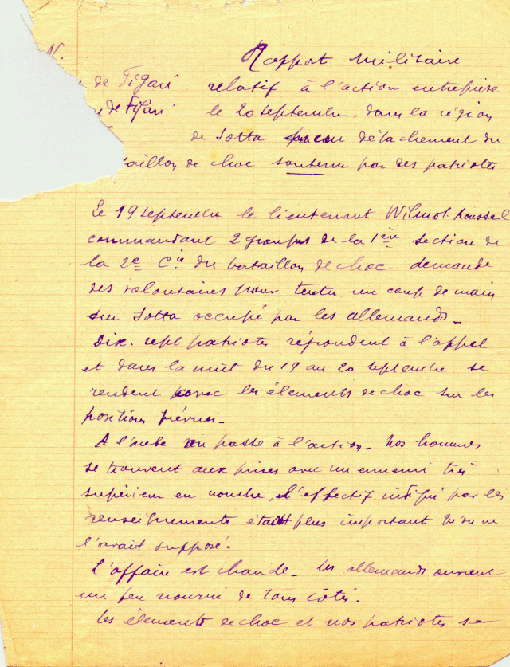 N.
Rapport militaire
de Figari relatif à l'action entreprise
de Figari le 20 septembre, dans la région
de Sotta par un détachement du
taillon de choc soutenu par des patriotes
Le 19 septembre le lieutenant Wilmot-Roussel
commandant 2 groupes de la 1ère section de
la 2e Cie du bataillon de choc demande
des volontaires pour tenter un coup de main
sur Sotta occupé par les allemands_
Dix-sept patriotes répondent à l'appel
et dans la nuit du 19 au 20 septembre se
rendent avec les éléments de choc sur les
positions prévues_
A l'aube on passe à l'action_ Nos hommes
se trouvent aux prises avec un ennemi très
supérieur en nombre, l'effectif indiqué par les
renseignements était plus important qu'on ne
l'avait supposé.
L'affaire est chaude_ Les allemands ouvrent
un feu nourri de tous côtés.
Les éléments de choc et nos patriotes se